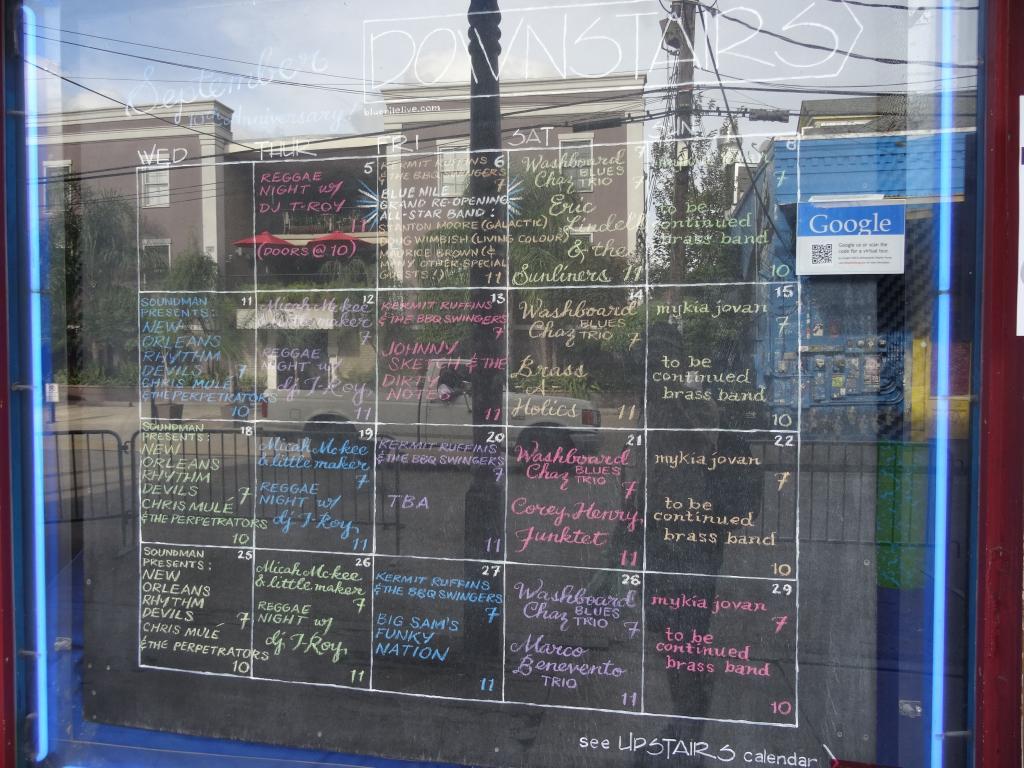 DOWNSTAIRS
September
10th anniversary
bluenilelive.com
WED THUR FRI SAT SUN
5
REGGAE
NIGHT W/
DJ T-ROY
11
(DOORS @ 10)
KERMIT RUFFINS 6
& THE BBQ SWINGERS
7
BLUE NILE
GRAND RE-OPENING
ALL-STAR BAND:
STANTON MOORE (GALACTIC)
DOUG WIMBISH (LIVING COLOUR)
MAURICE BROWN (&
MANY OTHER SPECIAL
GUESTS!)
11
7
Washboard
Chaz BLUES
TRIO 7
Eric
Lindell
& the
Sunliners 11
8
7
to be
continued
brass band
10
SOUNDMAN 11
PRESENTS:
NEW
ORLEANS
RHYTHM
DEVILS 7
CHRIS MULÉ
& THE PERPETRATORS
10
12
Micah McKee
& little maker
7
REGGAE
NIGHT W/
dj T-Roy
11
KERMIT RUFFINS 13
& THE BBQ SWINGERS
7
JOHNNY
SKETCH & THE
DIRTY
NOTES
11
14
Washboard
Chaz BLUES
TRIO 7
Brass
-A-
Holics 11
15
mykia jovan
7
to be
continued
brass band
10
SOUNDMAN 18
PRESENTS:
NEW
ORLEANS
RHYTHM
DEVILS 7
CHRIS MULÉ
& THE PERPETRATORS
10
19
Micah McKee
& little maker
7
REGGAE
NIGHT W/
dj T-Roy
11
20
KERMIT RUFFINS
& THE BBQ SWINGERS
7
TBA
11
21
Washboard
Chaz BLUES
TRIO 7
Corey Henry
Funktet
11
22
mykia jovan
7
to be
continued
brass band
10
SOUNDMAN 25
PRESENTS:
NEW
ORLEANS
RHYTHM
DEVILS 7
CHRIS MULÉ
& THE PERPETRATORS
10
26
Micah McKee
& little maker
7
REGGAE
NIGHT W/
dj T-Roy
11
27
KERMIT RUFFINS
& THE BBQ SWINGERS
7
BIG SAM'S
FUNKY
NATION
11
28
Washboard
Chaz BLUES
TRIO 7
Marco
Benevento
TRIO
11
29
mykia jovan
7
to be
continued
brass band
10
see UPSTAIRS calendar
Google
Google us or scan the
code for a virtual tour.